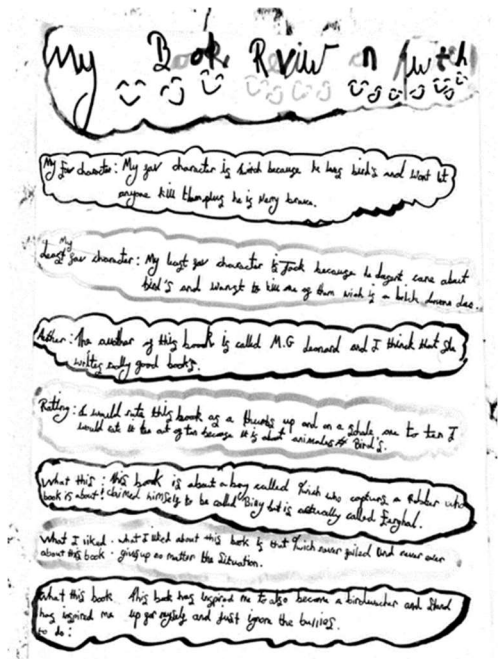 My Book Rview on Twitch
My fav character: My fav character is Twitch because he has bird's and wont let
anyone kill them plus he is very brave.
My
least fav character: My least fav character is Jack because he dosent care about
bird's and to kill one of them wich is a
Author: The author of this book is called M.G Leonard and I think that she
writes really good book's.
Rating: I would rate this book as a thumbs up and on a scale one to ten I
would rate it ten out of ten because it is about animals Bird's.
What this : this book is about a boy called Twich who captures a Robber who
book is about: claimed himself to be called Billy but is actually called
What I liked . what I liked about this book is that Twich never and never ever
about this book . gives up no matter the situation.
What this book This book has inspired me to also become a birdwacher and stand
has inspired me up for myself and just ignore the bullies.
to do: